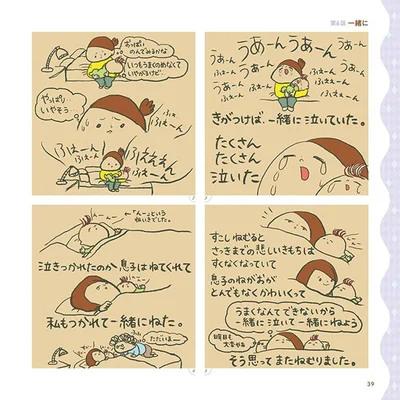 第6話 一緒に
おっぱい
のんでみるかな
いつもうまくのめなくて
いやがるけど…
ふぇーん
やっぱり
いやそう…
ふぇーん
ふぇーん
ふぇーん
ふぇぇぇん
ふぇーん
うあーんうあーん
うあーん
うあーん
うあーん
ふぇーん
ふぇーん
ふぇーん
きがつけば、一緒に泣いていた。
たくさん
たくさん
泣いた
んーんー
←「んー」という
ねいきでした。
泣きつかれたのか 息子はねてくれて
私もつかれて一緒にねた。
ただいまー
すこしねむると
さっきまでの悲しいきもちは
すくなくなっていて
息子のねがおが
とんでもなくかわいくって
うまくなんてできないから
一緒に泣いて一緒にねよう
明日も
大変だね
そう思ってまたねむりました。
39